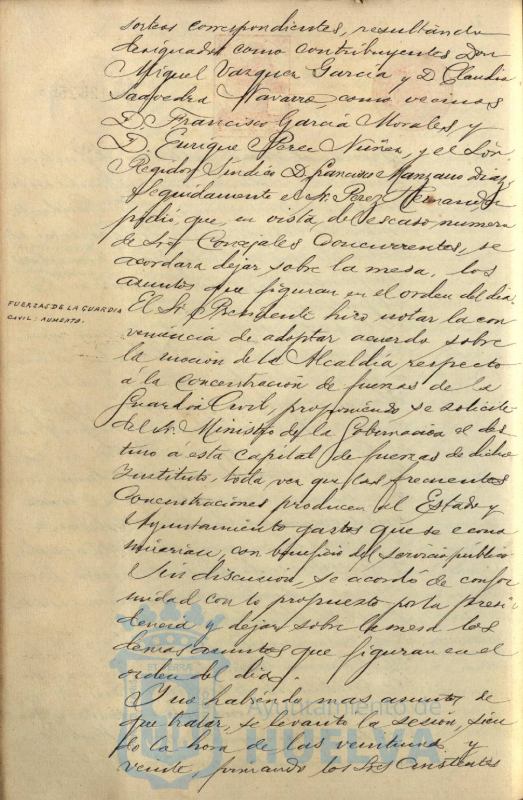 sorteos correspondientes, resultando
designados como contribuyentes Don
Miguel Vazquez García y D. Claudio
Saavedra Navarro como vecinos
D. Francisco García Morales y
D. Enrique Perez Nuñez, y el Sor.
Regidor Síndico D. Francisco Manzano Diaz.
Seguidamente el Sr. Perez Hernandez
pidió, que en vista del escaso numero
de Sres Concejales concurrentes, se
acordara dejar sobre la mesa, los
asuntos que figuran en el orden del dia.
FUERZAS DE LA GUARDIA
CIVIL: AUMENTO.
El Sr. Presidente hizo notar la con
veniencia de adoptar acuerdo sobre
la mocion de la Alcaldía respecto
á la concentración de fuerzas de la
Guardia Civil, proponiendo se solicite
del Sr. Ministro de la Gobernación el des
tino á esta Capital de fuerzas de dicho
Instituto, toda vez que las frecuentes
Concentraciones producen al Estado y
Ayuntamiento gastos que se econo
mizarian, con beneficio del servicio publico
Sin discusion, se acordó de confor
midad con lo propuesto por la Presi
dencia y dejar sobre la mesa los
demas asuntos que figuran en el
orden del dia.
Y no habiendo mas asuntos de
que tratar, se levantó la sesión, sien
do la hora de las veintiuna y
veinte, firmando los Sres Asistentes
Ayuntamiento de
HUELVA